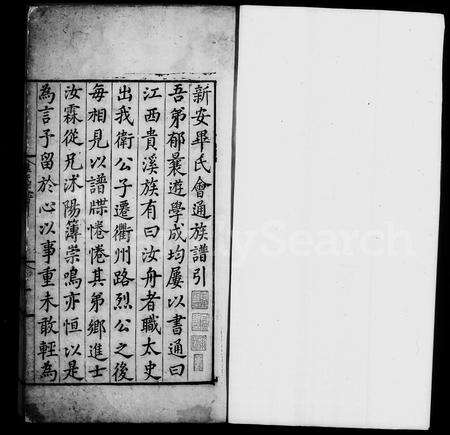 新安畢氏會通族譜引
吾弟郁曩遊學成均屢以書通曰
江西貴溪族有曰汝舟者職太史
出我衛公子遷衢州路烈公之後
每相見以譜牒惓惓其弟鄉進士
汝霖從兄沭陽薄崇鳴亦恒以是
為言予留於心以事重未敢輕為
FamilySearch